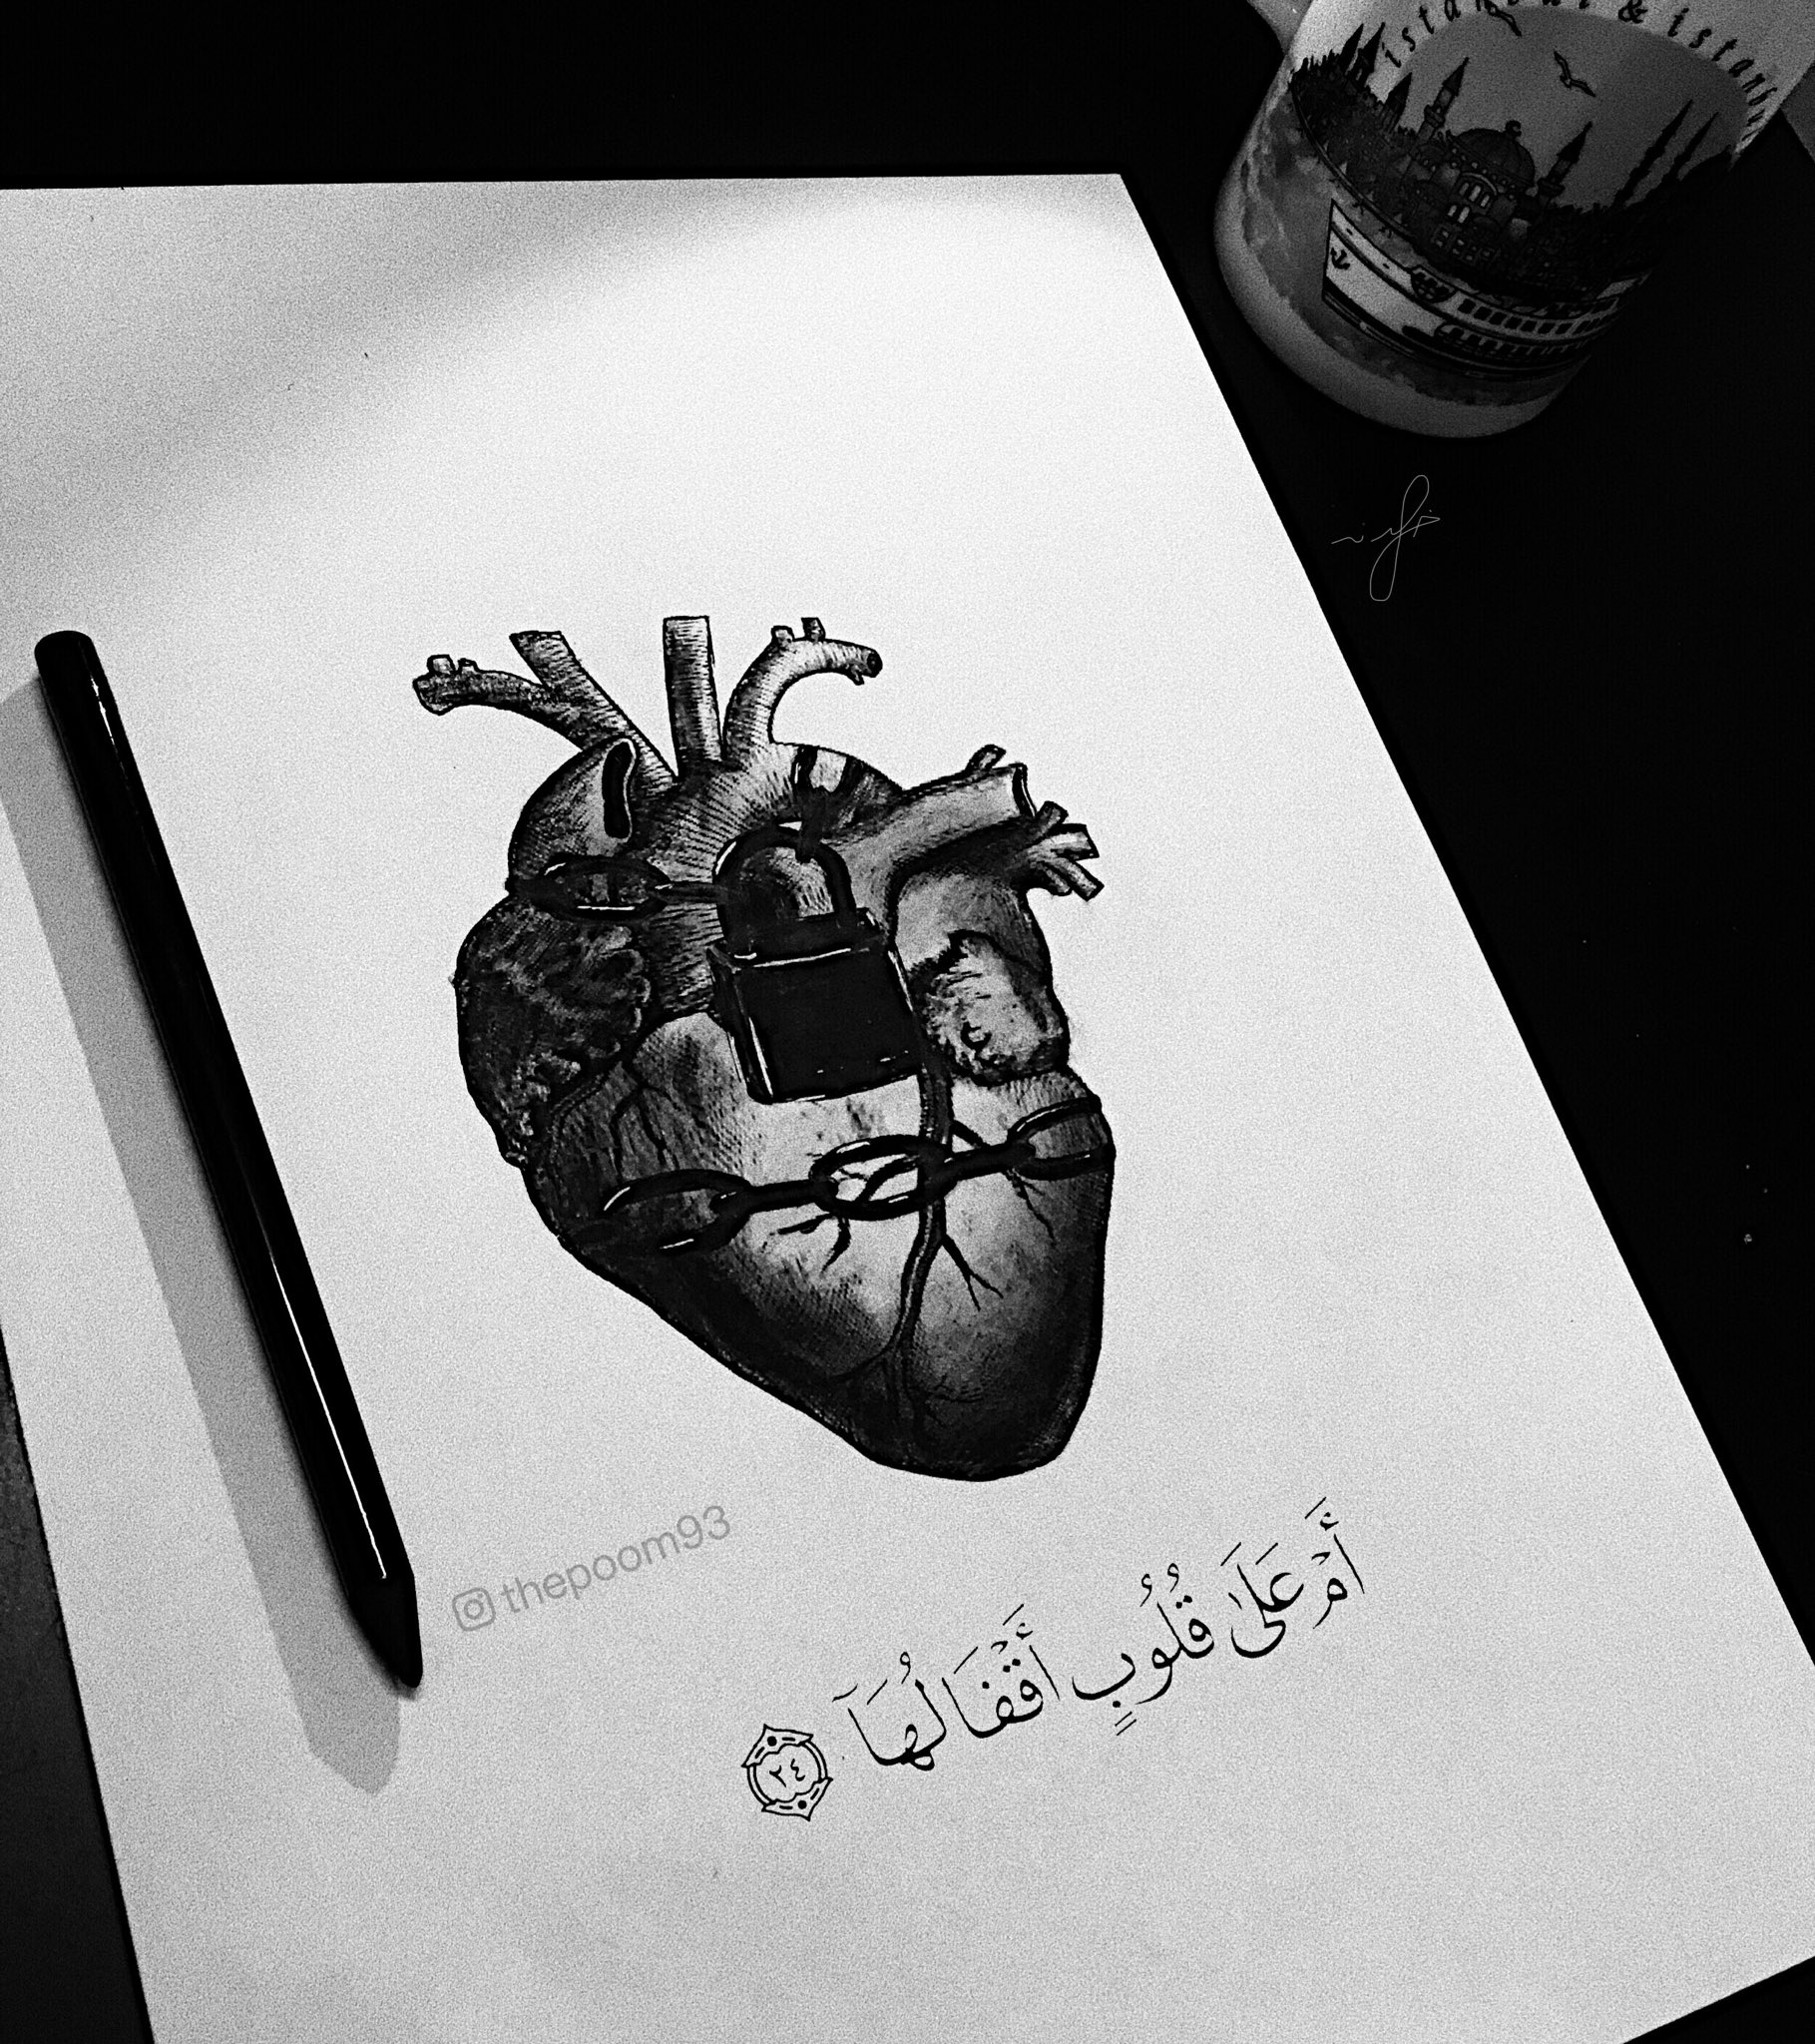 istanbul & istanbul
أَمْ عَلَىٰ قُلُوبٍ أَقْفَالُهَآ ٢٤
thepoom93